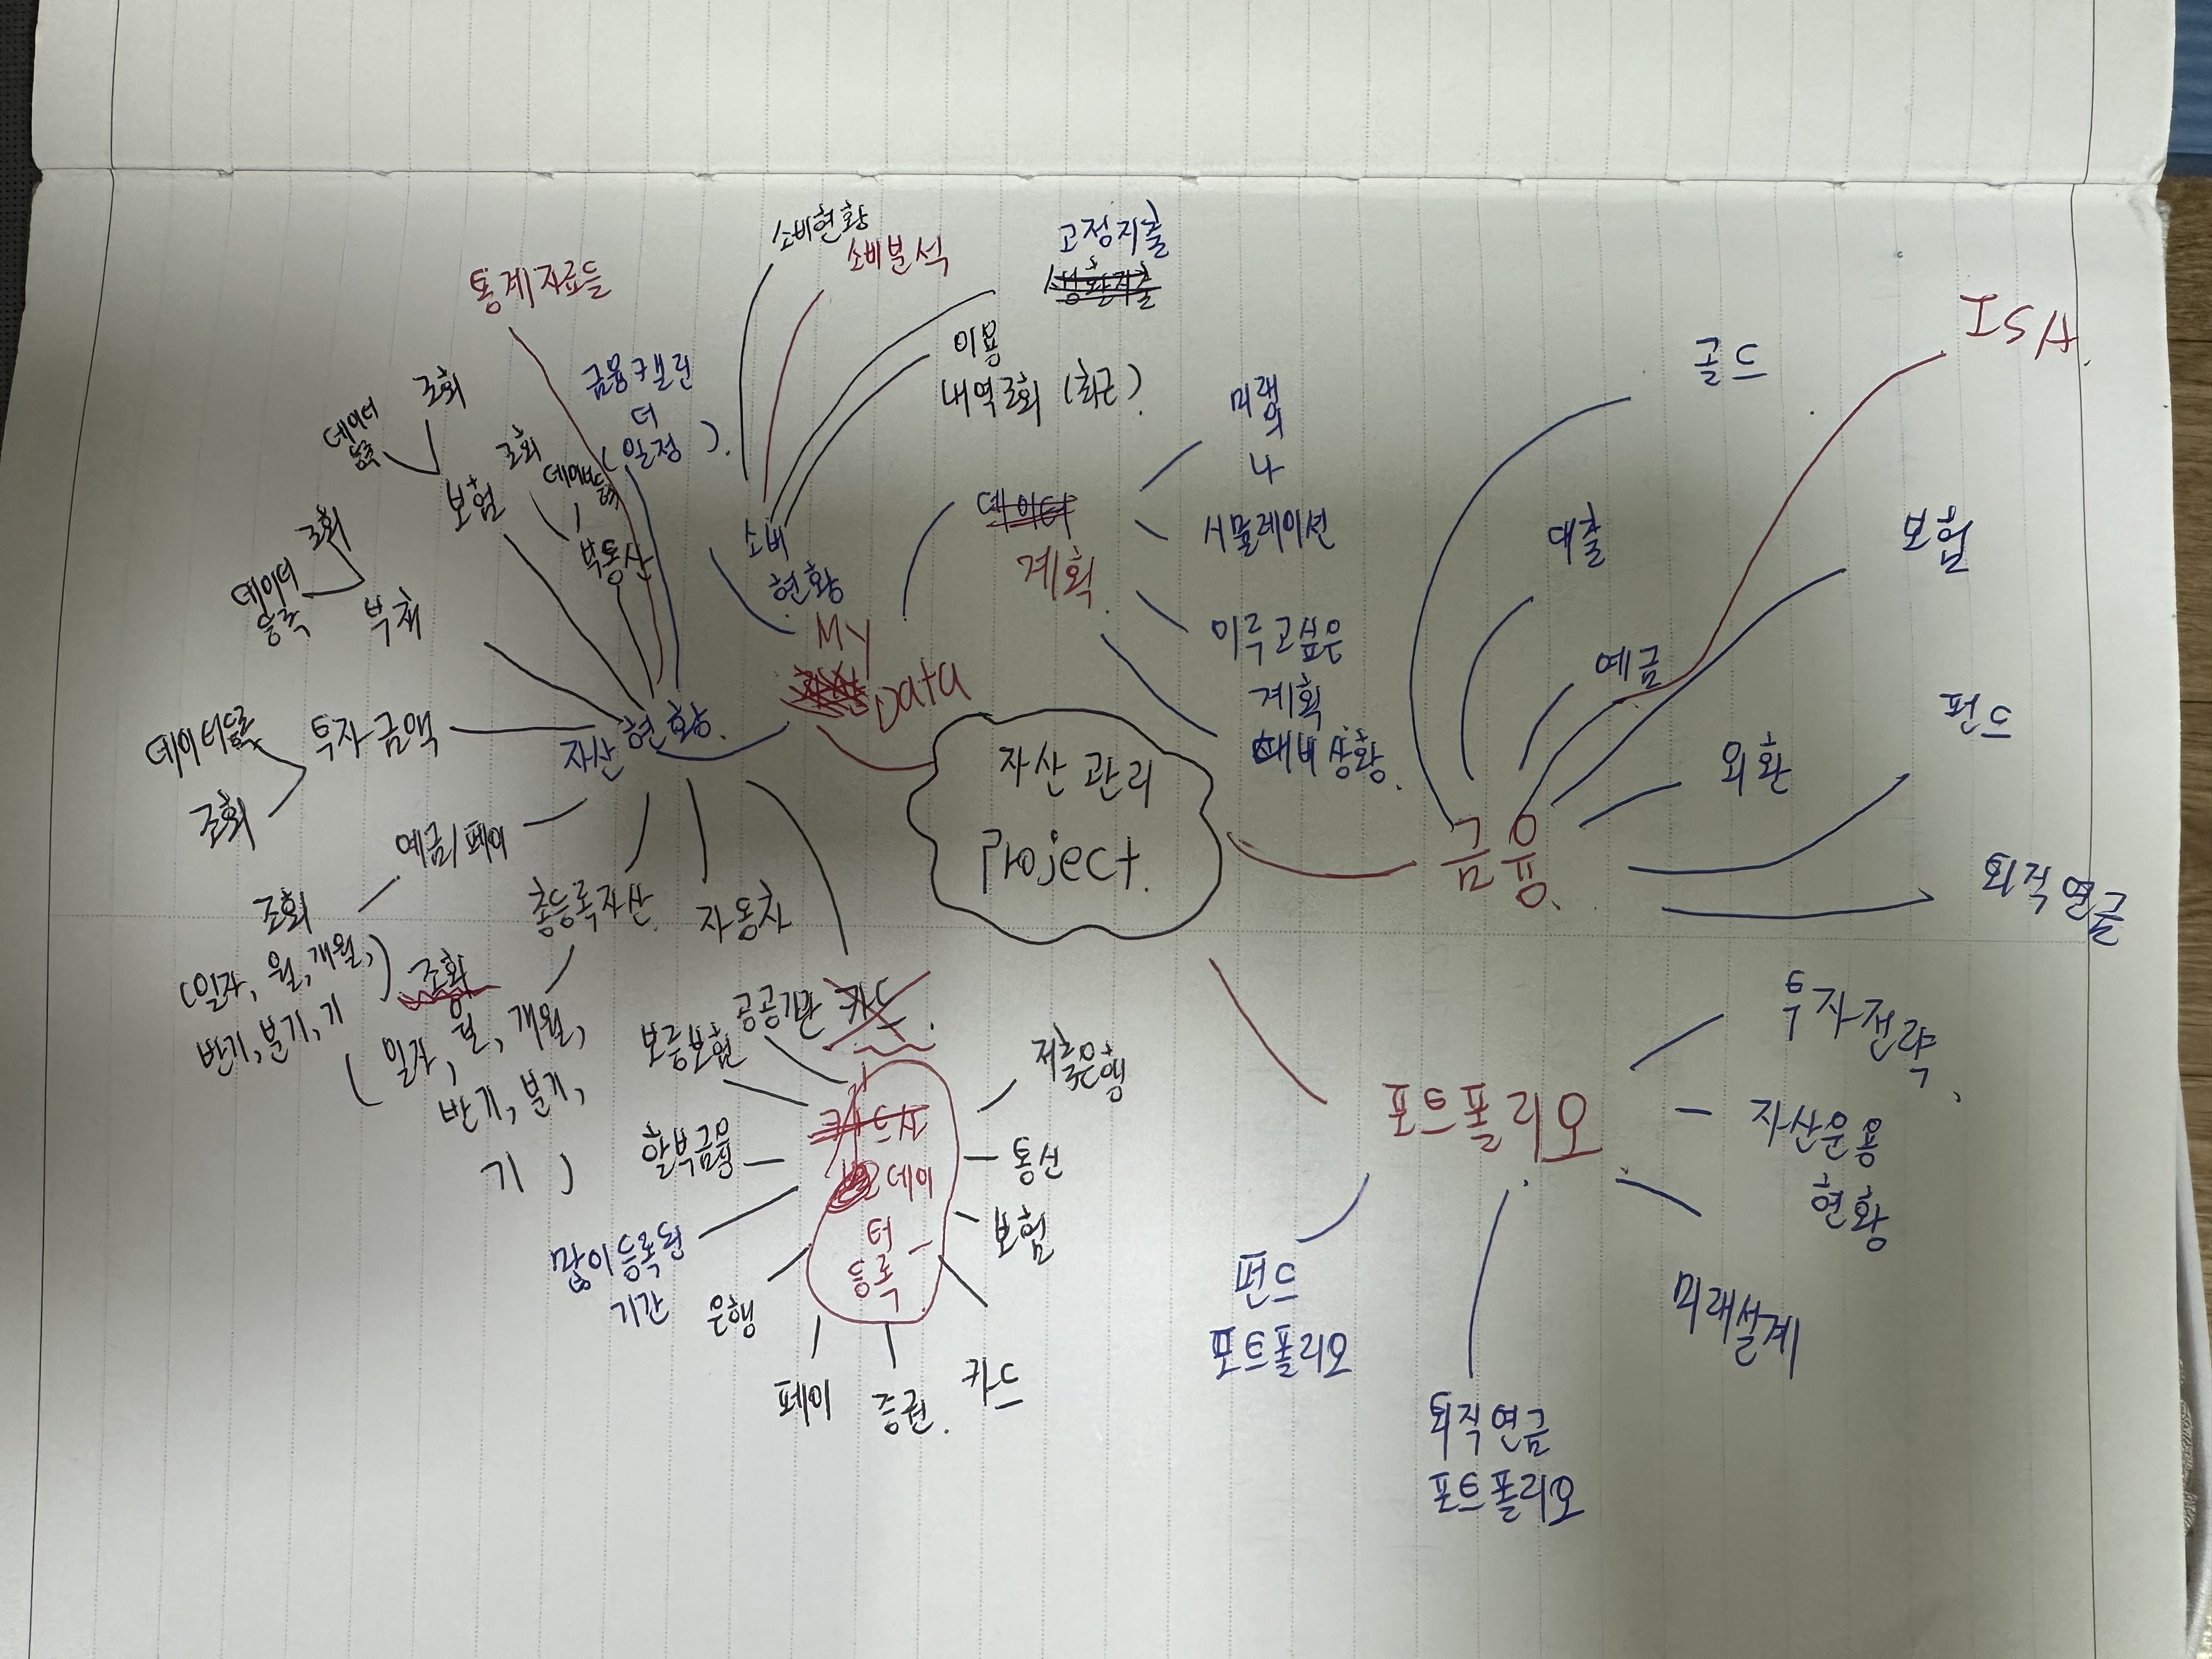 자산 관리
Project.
My
Data
소비
현황
소비현황
소비분석
고정지출
이용
내역조회 (최근)
계획
미래
의
나
시뮬레이션
이루고싶은
계획
대비상황.
자산 현황.
통계자료들
금융캘린
더
(일정)
부동산
조회
보험
조회
데이터
등록
부채
조회
데이터
등록
투자금액
데이터등록
조회
예금/페이
조회
(일자, 월, 개월,
반기, 분기, 기)
총등록자산
(일자, 월, 개월,
반기, 분기,
기)
자동차
데이
터
등록
공공기관
보증보험
할부금융
많이등록된
기간
은행
페이
증권.
카드
보험
통신
저축은행
금융.
골드
ISA.
대출
예금
보험
외환
펀드
퇴직연금
포트폴리오.
투자전략,
자산운용
현황
미래설계
퇴직연금
포트폴리오
펀드
포트폴리오